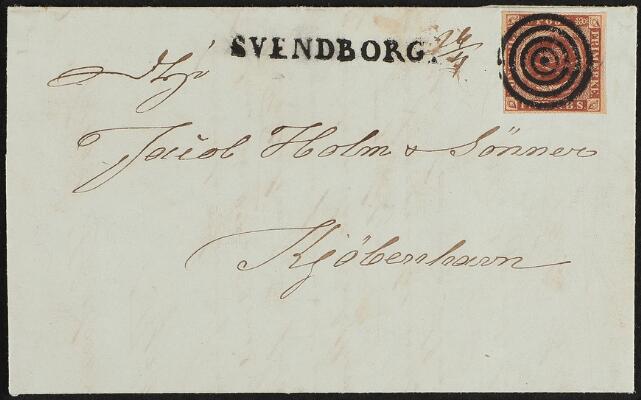 SVENDBORG.
24/4
FRIMÆRKE
Jacob Holm & Sønner
Kjöbenhavn